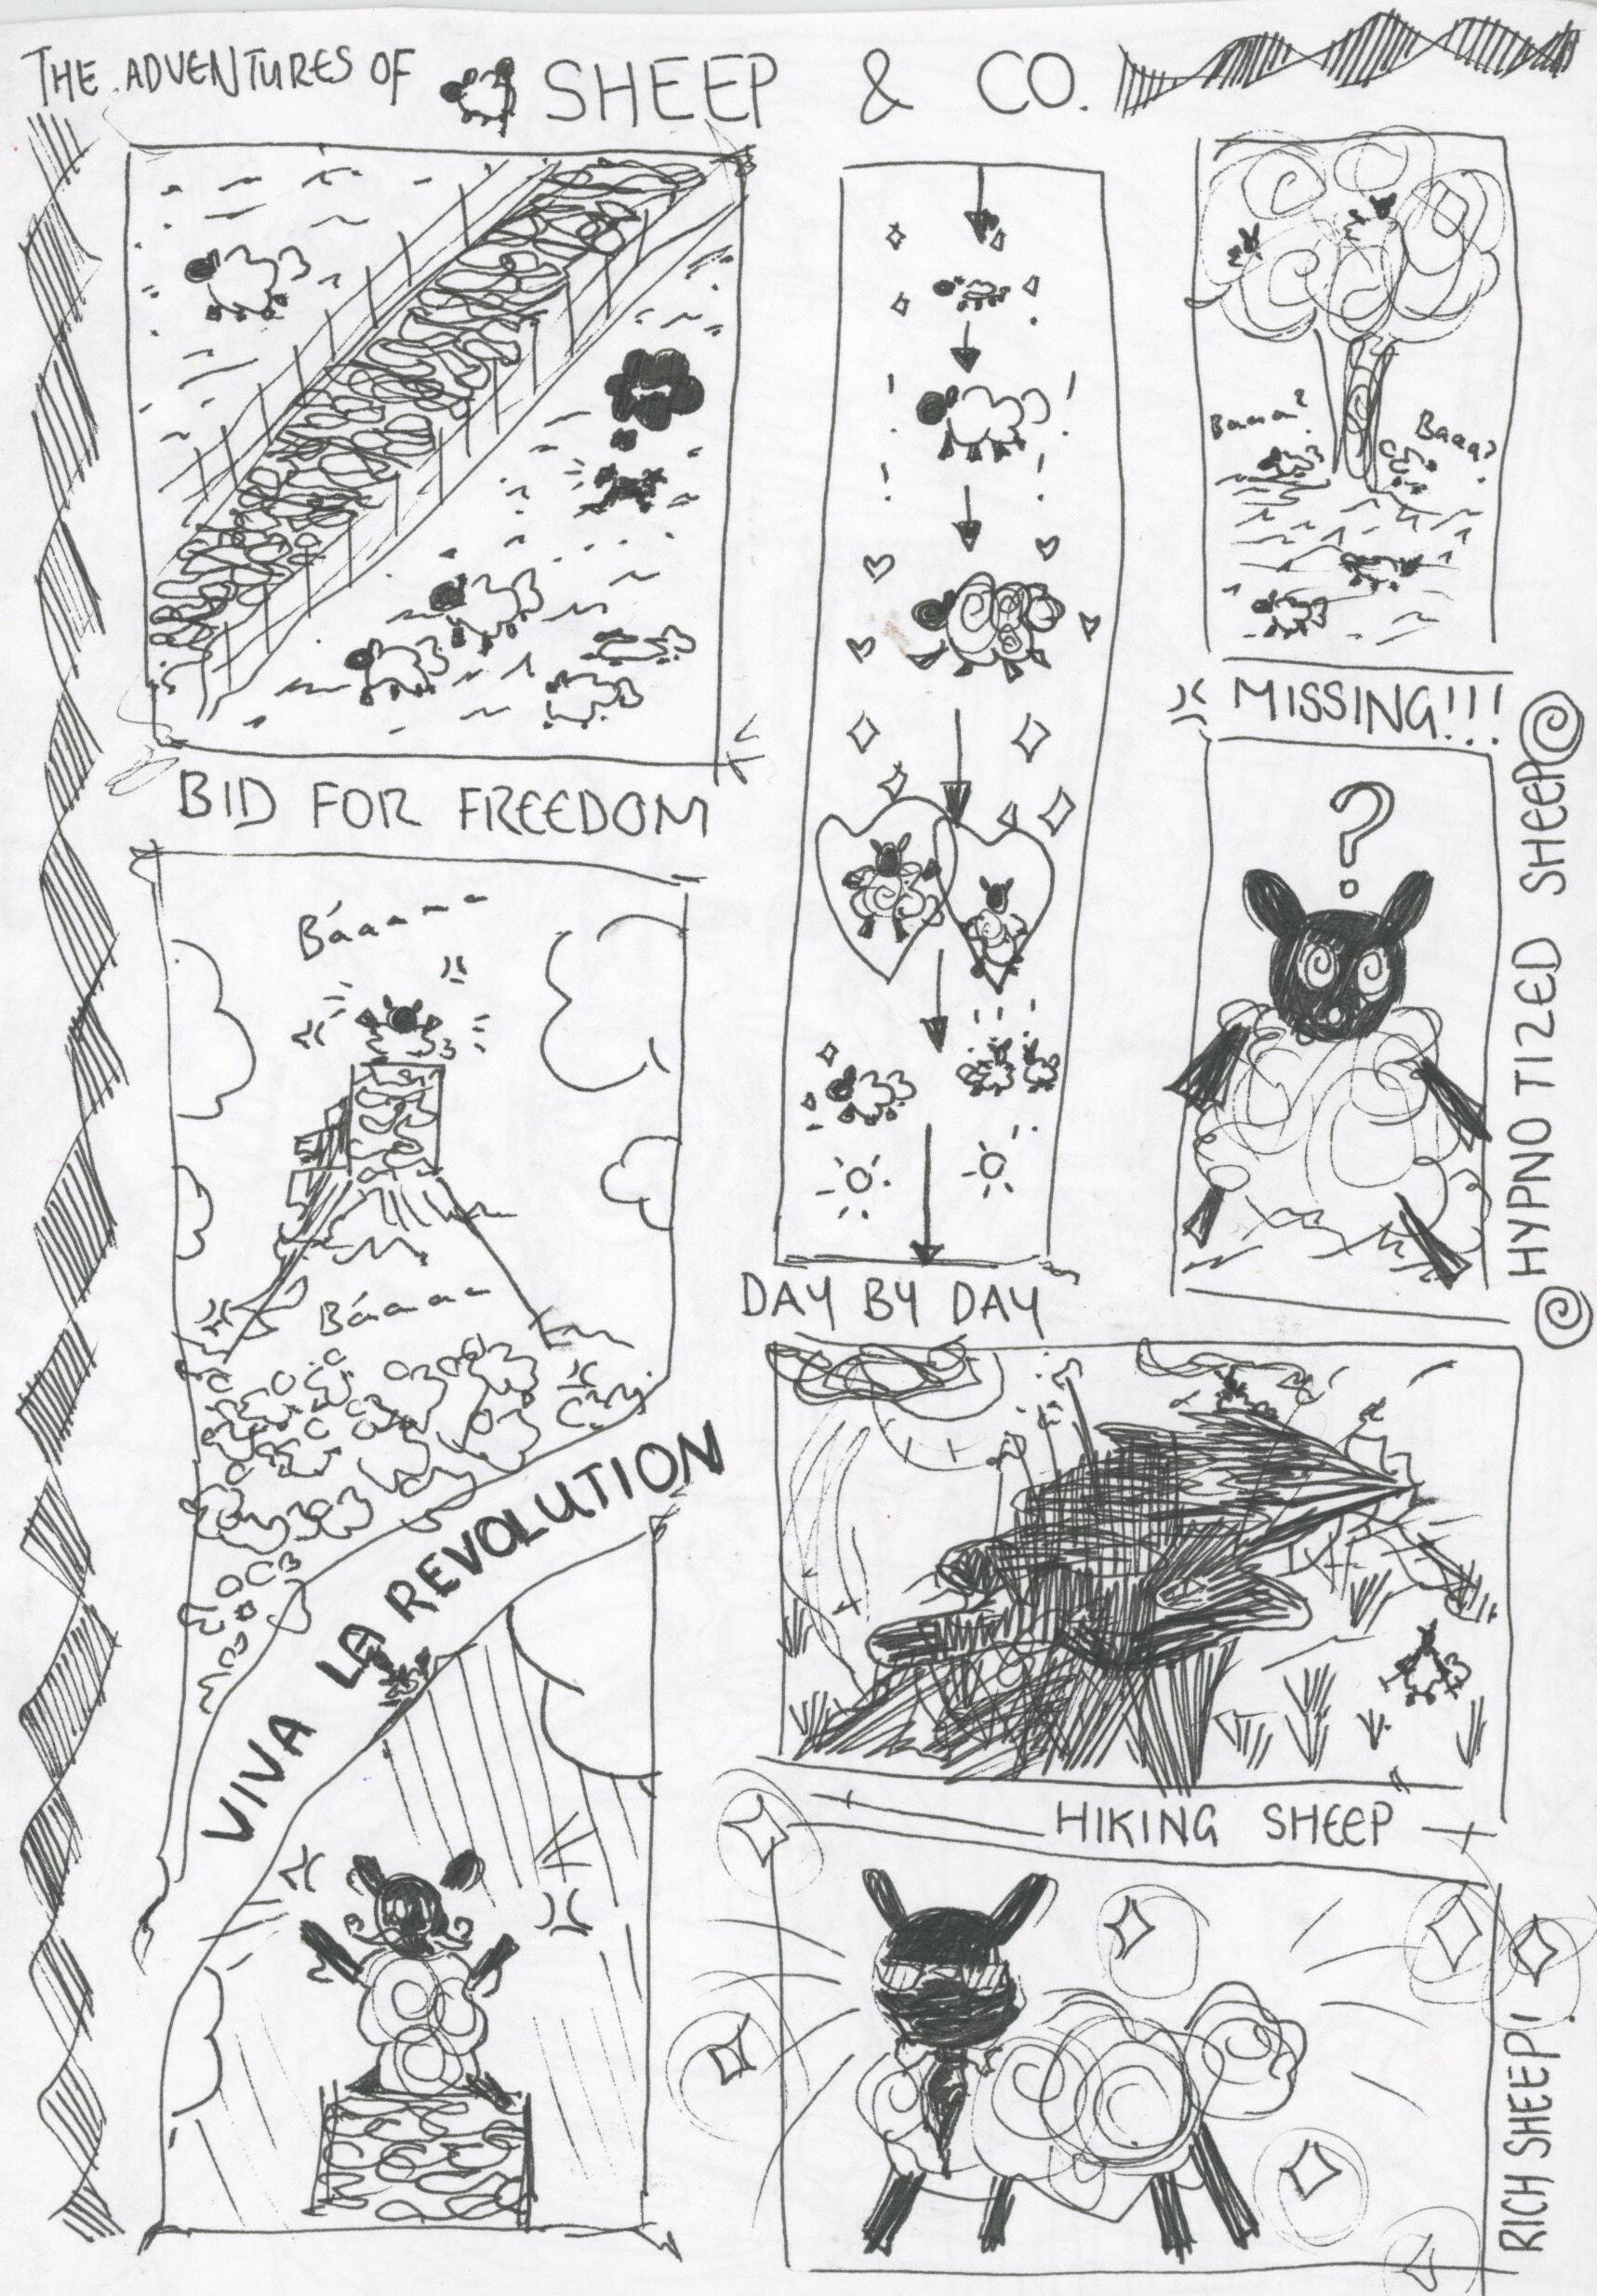 THE ADVENTURES OF SHEEP & CO.
BID FOR FREEDOM
Báaaaa
Báaaaa
VIVA LA REVOLUTION
DAY BY DAY
Baaaa?
Baaa?
MISSING!!!
?
HYPNOTIZED SHEEP
HIKING SHEEP
RICH SHEEP!